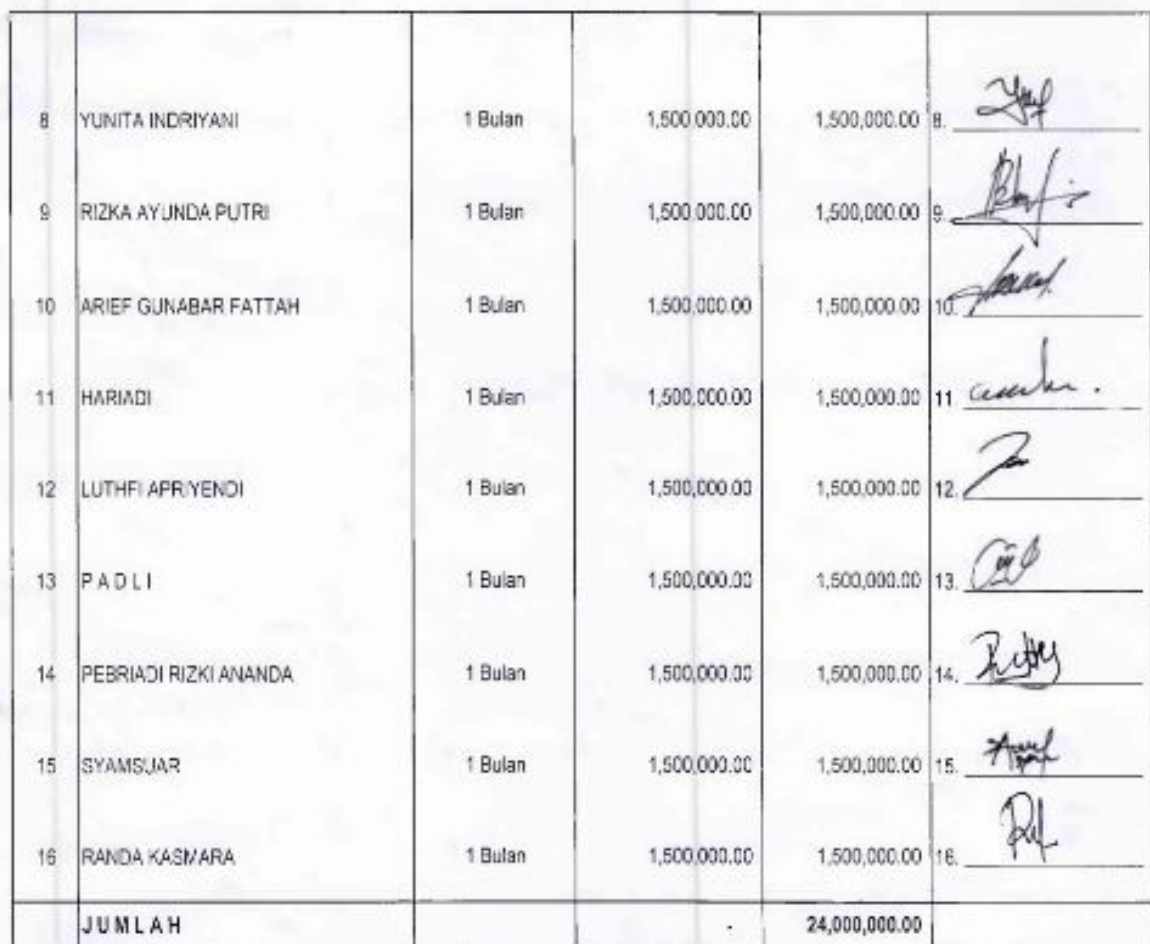 8 YUNITA INDRIYANI 1 Bulan 1,500,000.00 1,500,000.00 8.
9 RIZKA AYUNDA PUTRI 1 Bulan 1,500,000.00 1,500,000.00 9.
10 ARIEF GUNABAR FATTAH 1 Bulan 1,500,000.00 1,500,000.00 10.
11 HARIADI 1 Bulan 1,500,000.00 1,500,000.00 11.
12 LUTHFI APRIYENDI 1 Bulan 1,500,000.00 1,500,000.00 12.
13 P A D L I 1 Bulan 1,500,000.00 1,500,000.00 13.
14 PEBRIADI RIZKI ANANDA 1 Bulan 1,500,000.00 1,500,000.00 14.
15 SYAMSUAR 1 Bulan 1,500,000.00 1,500,000.00 15.
16 RANDA KASMARA 1 Bulan 1,500,000.00 1,500,000.00 16.
J U M L A H - 24,000,000.00